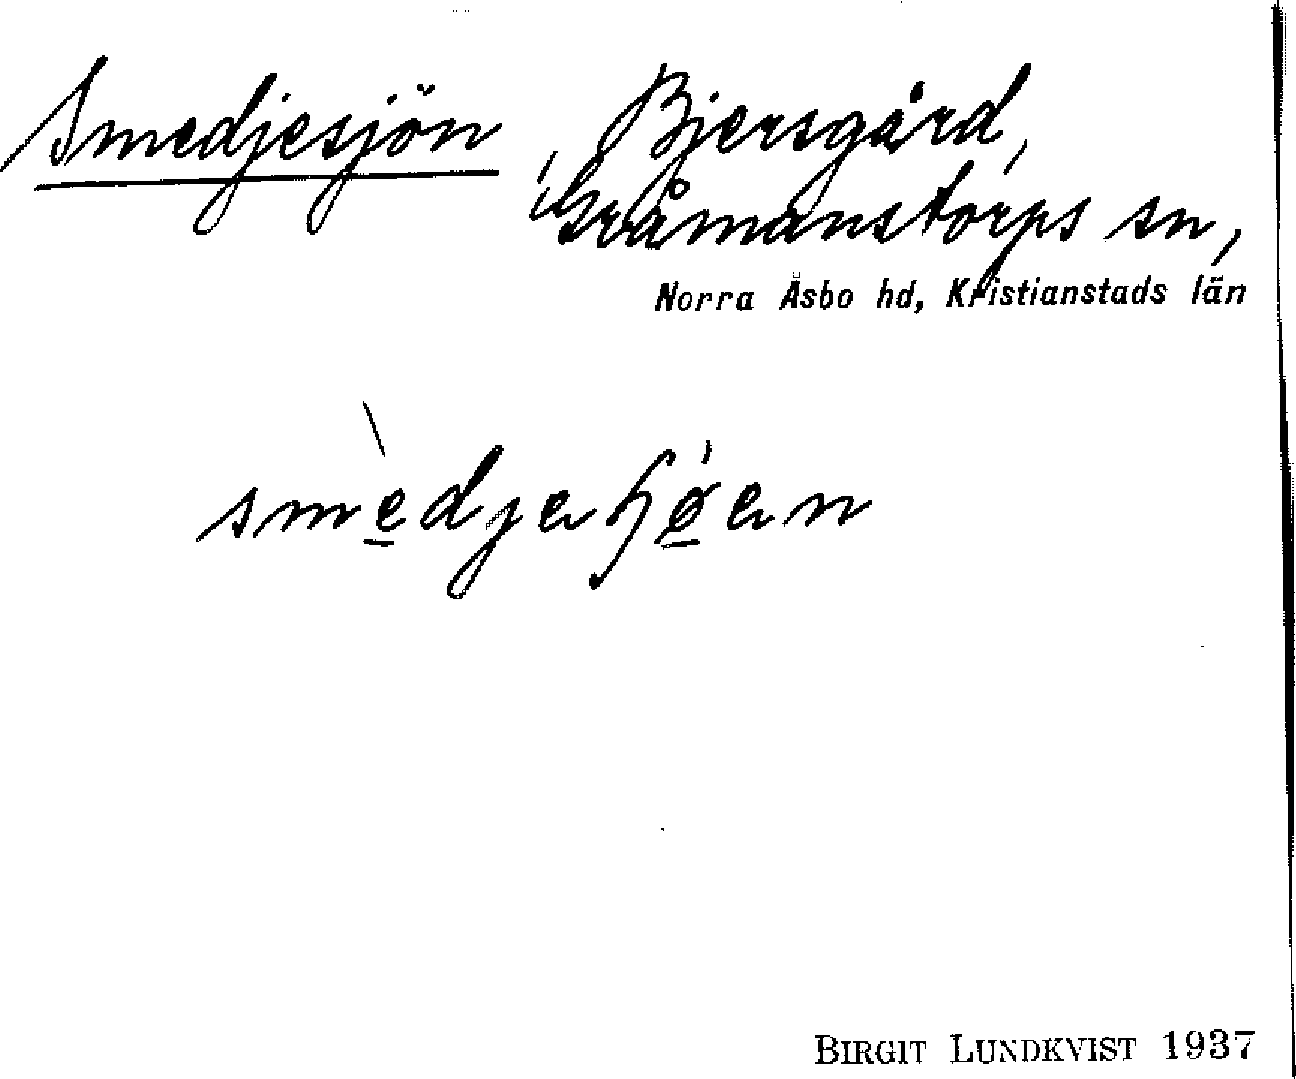 Smedjesjön, Bjersgård,
Gråmanstorps sn,
Norra Åsbo hd, Kristianstads län
BIRGIT LUNDKVIST 1937